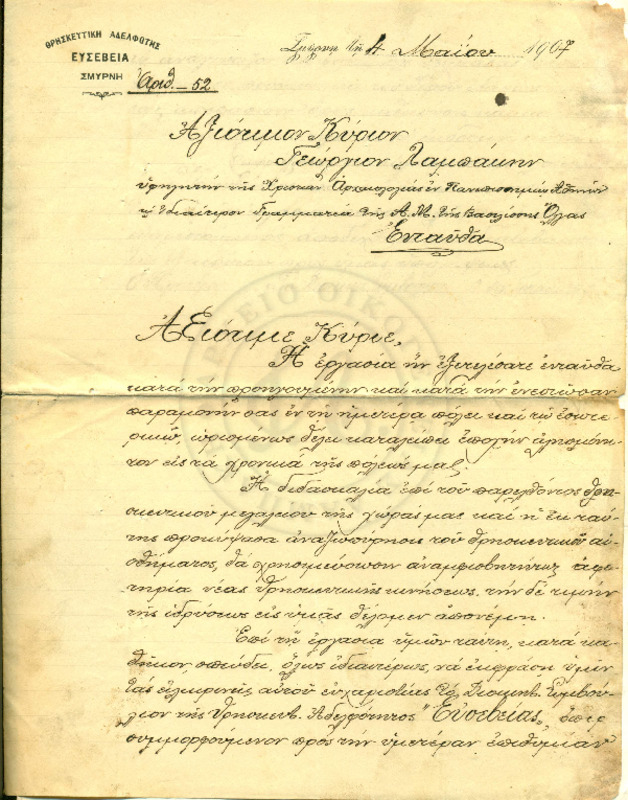 ΘΡΗΣΚΕΥΤΙΚΗ ΑΔΕΛΦΟΤΗΣ
ΕΥΣΕΒΕΙΑ
ΣΜΥΡΝΗ
Ἀριθ. 52
Σμύρνη τῇ 4 Μαΐου 1907
Ἀξιότιμον Κύριον
Γεώργιον Λαμπάκην
ὑφηγητὴν τῆς Χριστιαν. Ἀρχαιολογίας ἐν Πανεπιστημίῳ Ἀθηνῶν
κ ἰδιαίτερον Γραμματέα τῆς Α. Μ. τῆς Βασιλίσσης Ὄλγας
Ἐνταῦθα
Ἀξιότιμε Κύριε,
Ἡ ἐργασία ἣν ἐξετελέσατε ἐνταῦθα
κατὰ τὴν προηγουμένην καὶ κατὰ τὴν ἐνεστῶσαν
παραμονήν σας ἐν τῇ ἡμετέρᾳ πόλει καὶ τῷ ἐσωτε-
ρικῷ, ὡρισμένως θέλει καταλείπει ἐποχὴν ἀλησμόνη-
τον εἰς τὰ χρονικὰ τῆς πόλεώς μας.
Ἡ διδασκαλία ἐπὶ τοῦ παρελθόντος θρη-
σκευτικοῦ μεγαλείου τῆς χώρας μας καὶ ἡ ἐκ ταύ-
της προκύψασα ἀναζωπύρησις τοῦ θρησκευτικοῦ αἰ-
σθήματος, θὰ χρησιμεύσωσιν ἀναμφισβητήτως ἀφε-
τηρία νέας θρησκευτικῆς κινήσεως, τὴν δὲ τιμὴν
τῆς ἱδρύσεως εἰς ὑμᾶς θέλομεν ἀπονέμῃ.
Ἐπὶ τῇ ἐργασίᾳ ὑμῶν ταύτῃ, κατὰ κα-
θῆκον σπεύδει, ὅλως ἰδιαιτέρως, νὰ ἐκφράσῃ ὑμῖν
τὰς εἰλικρινεῖς αὐτοῦ εὐχαριστίας τὸ Διοικητ. Συμβού-
λιον τῆς Θρησκευτ. Ἀδελφότητος "Εὐσεβείας", ὅπερ
συμμορφούμενον πρὸς τὴν ὑμετέραν ἐπιθυμίαν